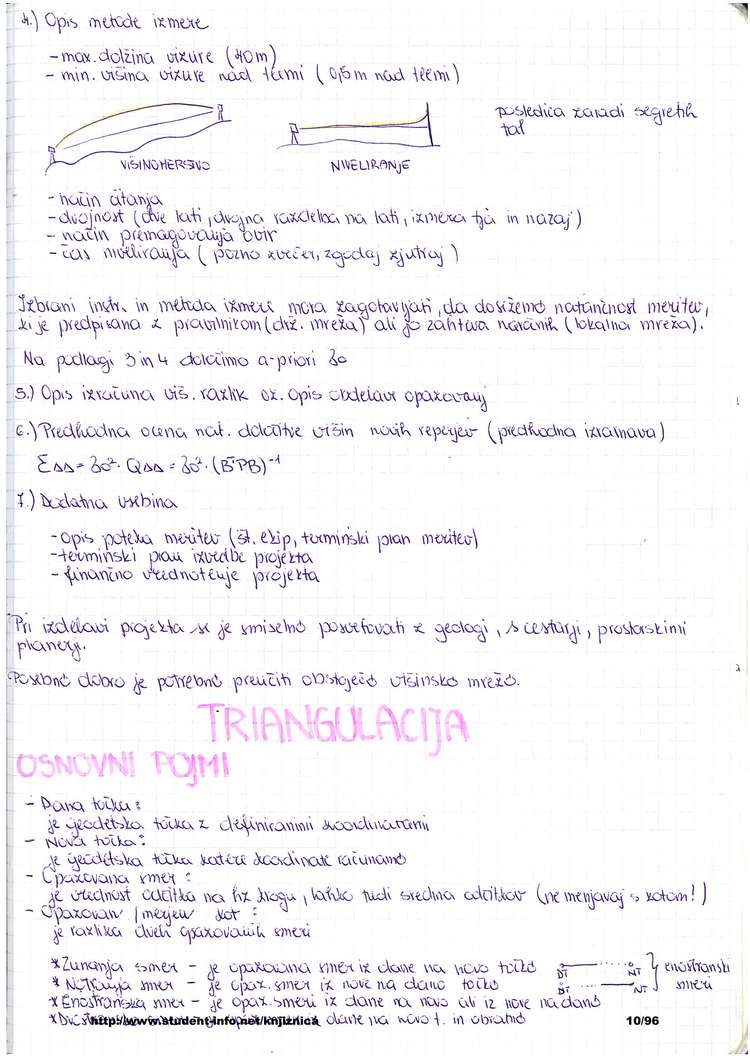 4.) Opis metode izmere
- max. dolžina vizure (40m)
- min. višina vizure nad tlemi (0,5m nad tlemi)
posledica zaradi segretih
tal
VIŠINOMERSTVO
NIVELIRANJE
- način čitanja
- dvojnost (dve lati, dvojna razdelba na lati, izmera tja in nazaj)
- način premagovanja ovir
- čas niveliranja (pozno zvečer, zgodaj zjutraj)
Izbrani instr. in metoda izmere mora zagotavljati, da dosežemo natančnost meritev,
ki je predpisana z pravilnikom (drž. mreža) ali jo zahteva naročnik (lokalna mreža).
Na podlagi 3 in 4 določimo a-priori σ0
5.) Opis izračuna viš. razlik oz. opis obdelave opazovanj
6.) Predhodna ocena nat. določitve višin novih reperjev (predhodna izravnava)
ΣΔΔ = σ0². QΔΔ = σ0². (BᵀPB)⁻¹
7.) Dodatna vsebina
- opis poteka meritev (št. ekip, terminski plan meritev)
- terminski plan izvedbe projekta
- finančno vrednotenje projekta
Pri izdelavi projekta se je smiselno posvetovati z geologi, s cestarji, prostorskimi
planerji.
Posebno dobro je potrebno preučiti obstoječo višinsko mrežo.
TRIANGULACIJA
OSNOVNI POJMI
- Dana točka:
je geodetska točka z definiranimi koordinatami
- Nova točka:
je geodetska točka katere koordinate računamo
- Opazovana smer:
je vrednost odčitka na hz krogu, lahko tudi sredina odčitkov (ne menjavaj s kotom!)
- Opazovan / merjen kot:
je razlika dveh opazovanih smeri
* Zunanja smer - je opazovana smer iz dane na novo točko DT NT } enostranski
* Notranja smer - je opaz. smer iz nove na dano točko DT NT smeri
* Enostranska smer - je opaz. smeri iz dane na novo ali iz nove na dano
dane na novo t. in obratno
http://www.student-info.net/knjiznica
10/96